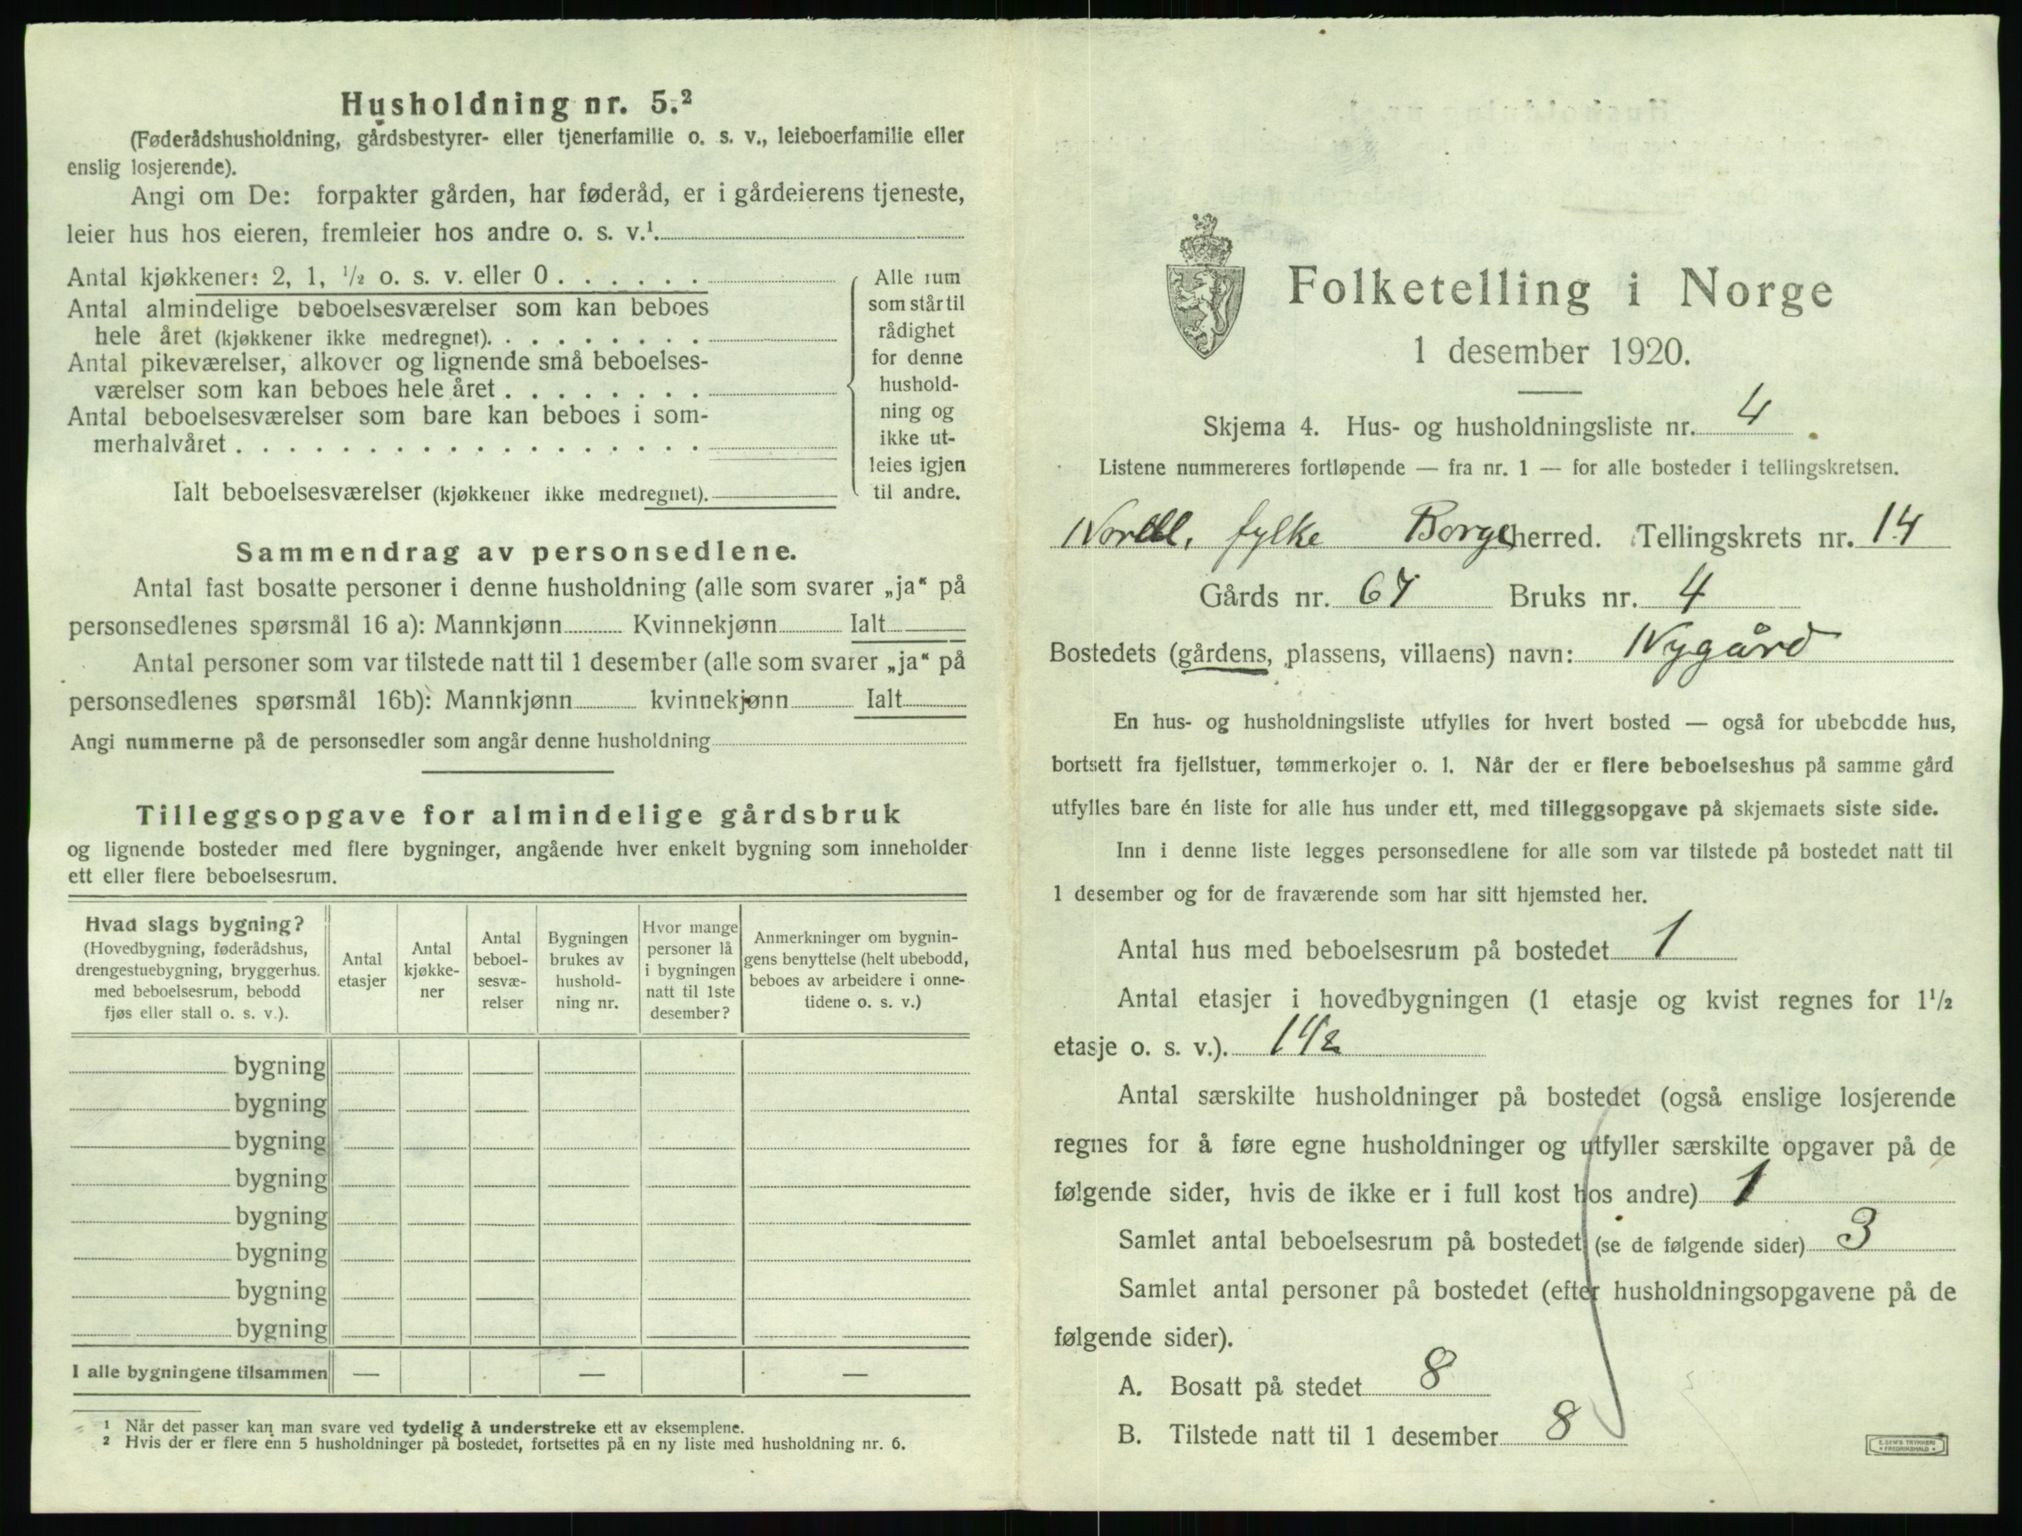 Husholdning nr. 5.²
(Føderådshusholdning, gårdsbestyrer- eller tjenerfamilie o. s. v., leieboerfamilie eller
enslig losjerende).
Angi om De: forpakter gården, har føderåd, er i gårdeierens tjeneste,
leier hus hos eieren, fremleier hos andre o. s. v.¹
Antal kjøkkener: 2, 1, ½ o. s. v. eller 0 . . . . . .
Antal almindelige beboelsesværelser som kan beboes
hele året (kjøkkener ikke medregnet). . . . . . . . .
Antal pikeværelser, alkover og lignende små beboelses-
værelser som kan beboes hele året . . . . . . . .
Antal beboelsesværelser som bare kan beboes i som-
merhalvåret . . . . . . . . . . . . . . . . . .
Ialt beboelsesværelser (kjøkkener ikke medregnet).
Alle rum
som står til
rådighet
for denne
hushold-
ning og
ikke ut-
leies igjen
til andre.
Sammendrag av personsedlene.
Antal fast bosatte personer i denne husholdning (alle som svarer „ja“ på
personsedlenes spørsmål 16 a): Mannkjønn Kvinnekjønn Ialt
Antal personer som var tilstede natt til 1 desember (alle som svarer „ja“ på
personsedlenes spørsmål 16b): Mannkjønn kvinnekjønn Ialt
Angi nummerne på de personsedler som angår denne husholdning
Tilleggsopgave for almindelige gårdsbruk
og lignende bosteder med flere bygninger, angående hver enkelt bygning som inneholder
ett eller flere beboelsesrum.
Hvad slags bygning?
(Hovedbygning, føderådshus,
drengestuebygning, bryggerhus.
med beboelsesrum, bebodd
fjøs eller stall o. s. v.).
Antal
etasjer
Antal
kjøkke-
ner
Antal
beboel-
sesvæ-
relser
Bygningen
brukes av
hushold-
ning nr.
Hvor mange
personer lå
i bygningen
natt til 1ste
desember?
Anmerkninger om bygnin-
gens benyttelse (helt ubebodd,
beboes av arbeidere i onne-
tidene o. s. v.)
bygning
bygning
bygning
bygning
bygning
bygning
bygning
bygning
I alle bygningene tilsammen — — —
¹ Når det passer kan man svare ved tydelig å understreke ett av eksemplene.
² Hvis der er flere enn 5 husholdninger på bostedet, fortsettes på en ny liste med husholdning nr. 6.
Folketelling i Norge
1 desember 1920.
Skjema 4. Hus- og husholdningsliste nr. 4
Listene nummereres fortløpende — fra nr. 1 — for alle bosteder i tellingskretsen.
Nordl. fylke Borge herred. Tellingskrets nr. 14
Gårds nr. 67 Bruks nr. 4
Bostedets (gårdens, plassens, villaens) navn: Nygård
En hus- og husholdningsliste utfylles for hvert bosted — også for ubebodde hus,
bortsett fra fjellstuer, tømmerkojer o. l. Når der er flere beboelseshus på samme gård
utfylles bare én liste for alle hus under ett, med tilleggsopgave på skjemaets siste side.
Inn i denne liste legges personsedlene for alle som var tilstede på bostedet natt til
1 desember og for de fraværende som har sitt hjemsted her.
Antal hus med beboelsesrum på bostedet 1
Antal etasjer i hovedbygningen (1 etasje og kvist regnes for 1½
etasje o. s. v.). 1 1/2
Antal særskilte husholdninger på bostedet (også enslige losjerende
regnes for å føre egne husholdninger og utfyller særskilte opgaver på de
følgende sider, hvis de ikke er i full kost hos andre) 1
Samlet antal beboelsesrum på bostedet (se de følgende sider) 3
Samlet antal personer på bostedet (efter husholdningsopgavene på de
følgende sider).
A. Bosatt på stedet 8
B. Tilstede natt til 1 desember 8
E. SEM'S TRYKKERI
FREDRIKSHALD